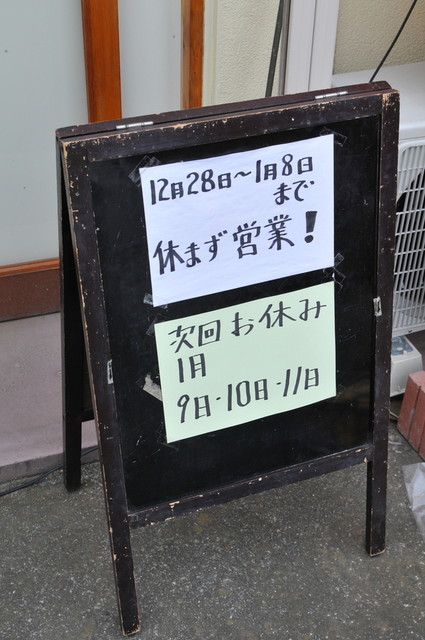 12月28日～1月8日
まで
休まず営業!
次回お休み
1月
9日・10日・11日